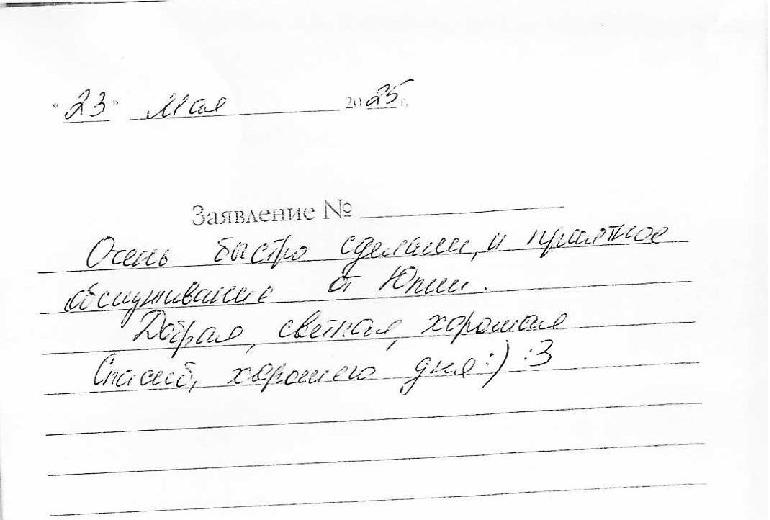 "23" Мая 2025 г.
Заявление №
Очень быстро сделали, и приятное
обслуживание от Юлии.
Добрая, светлая, хорошая
Спасиб, хорошего дня :) :3